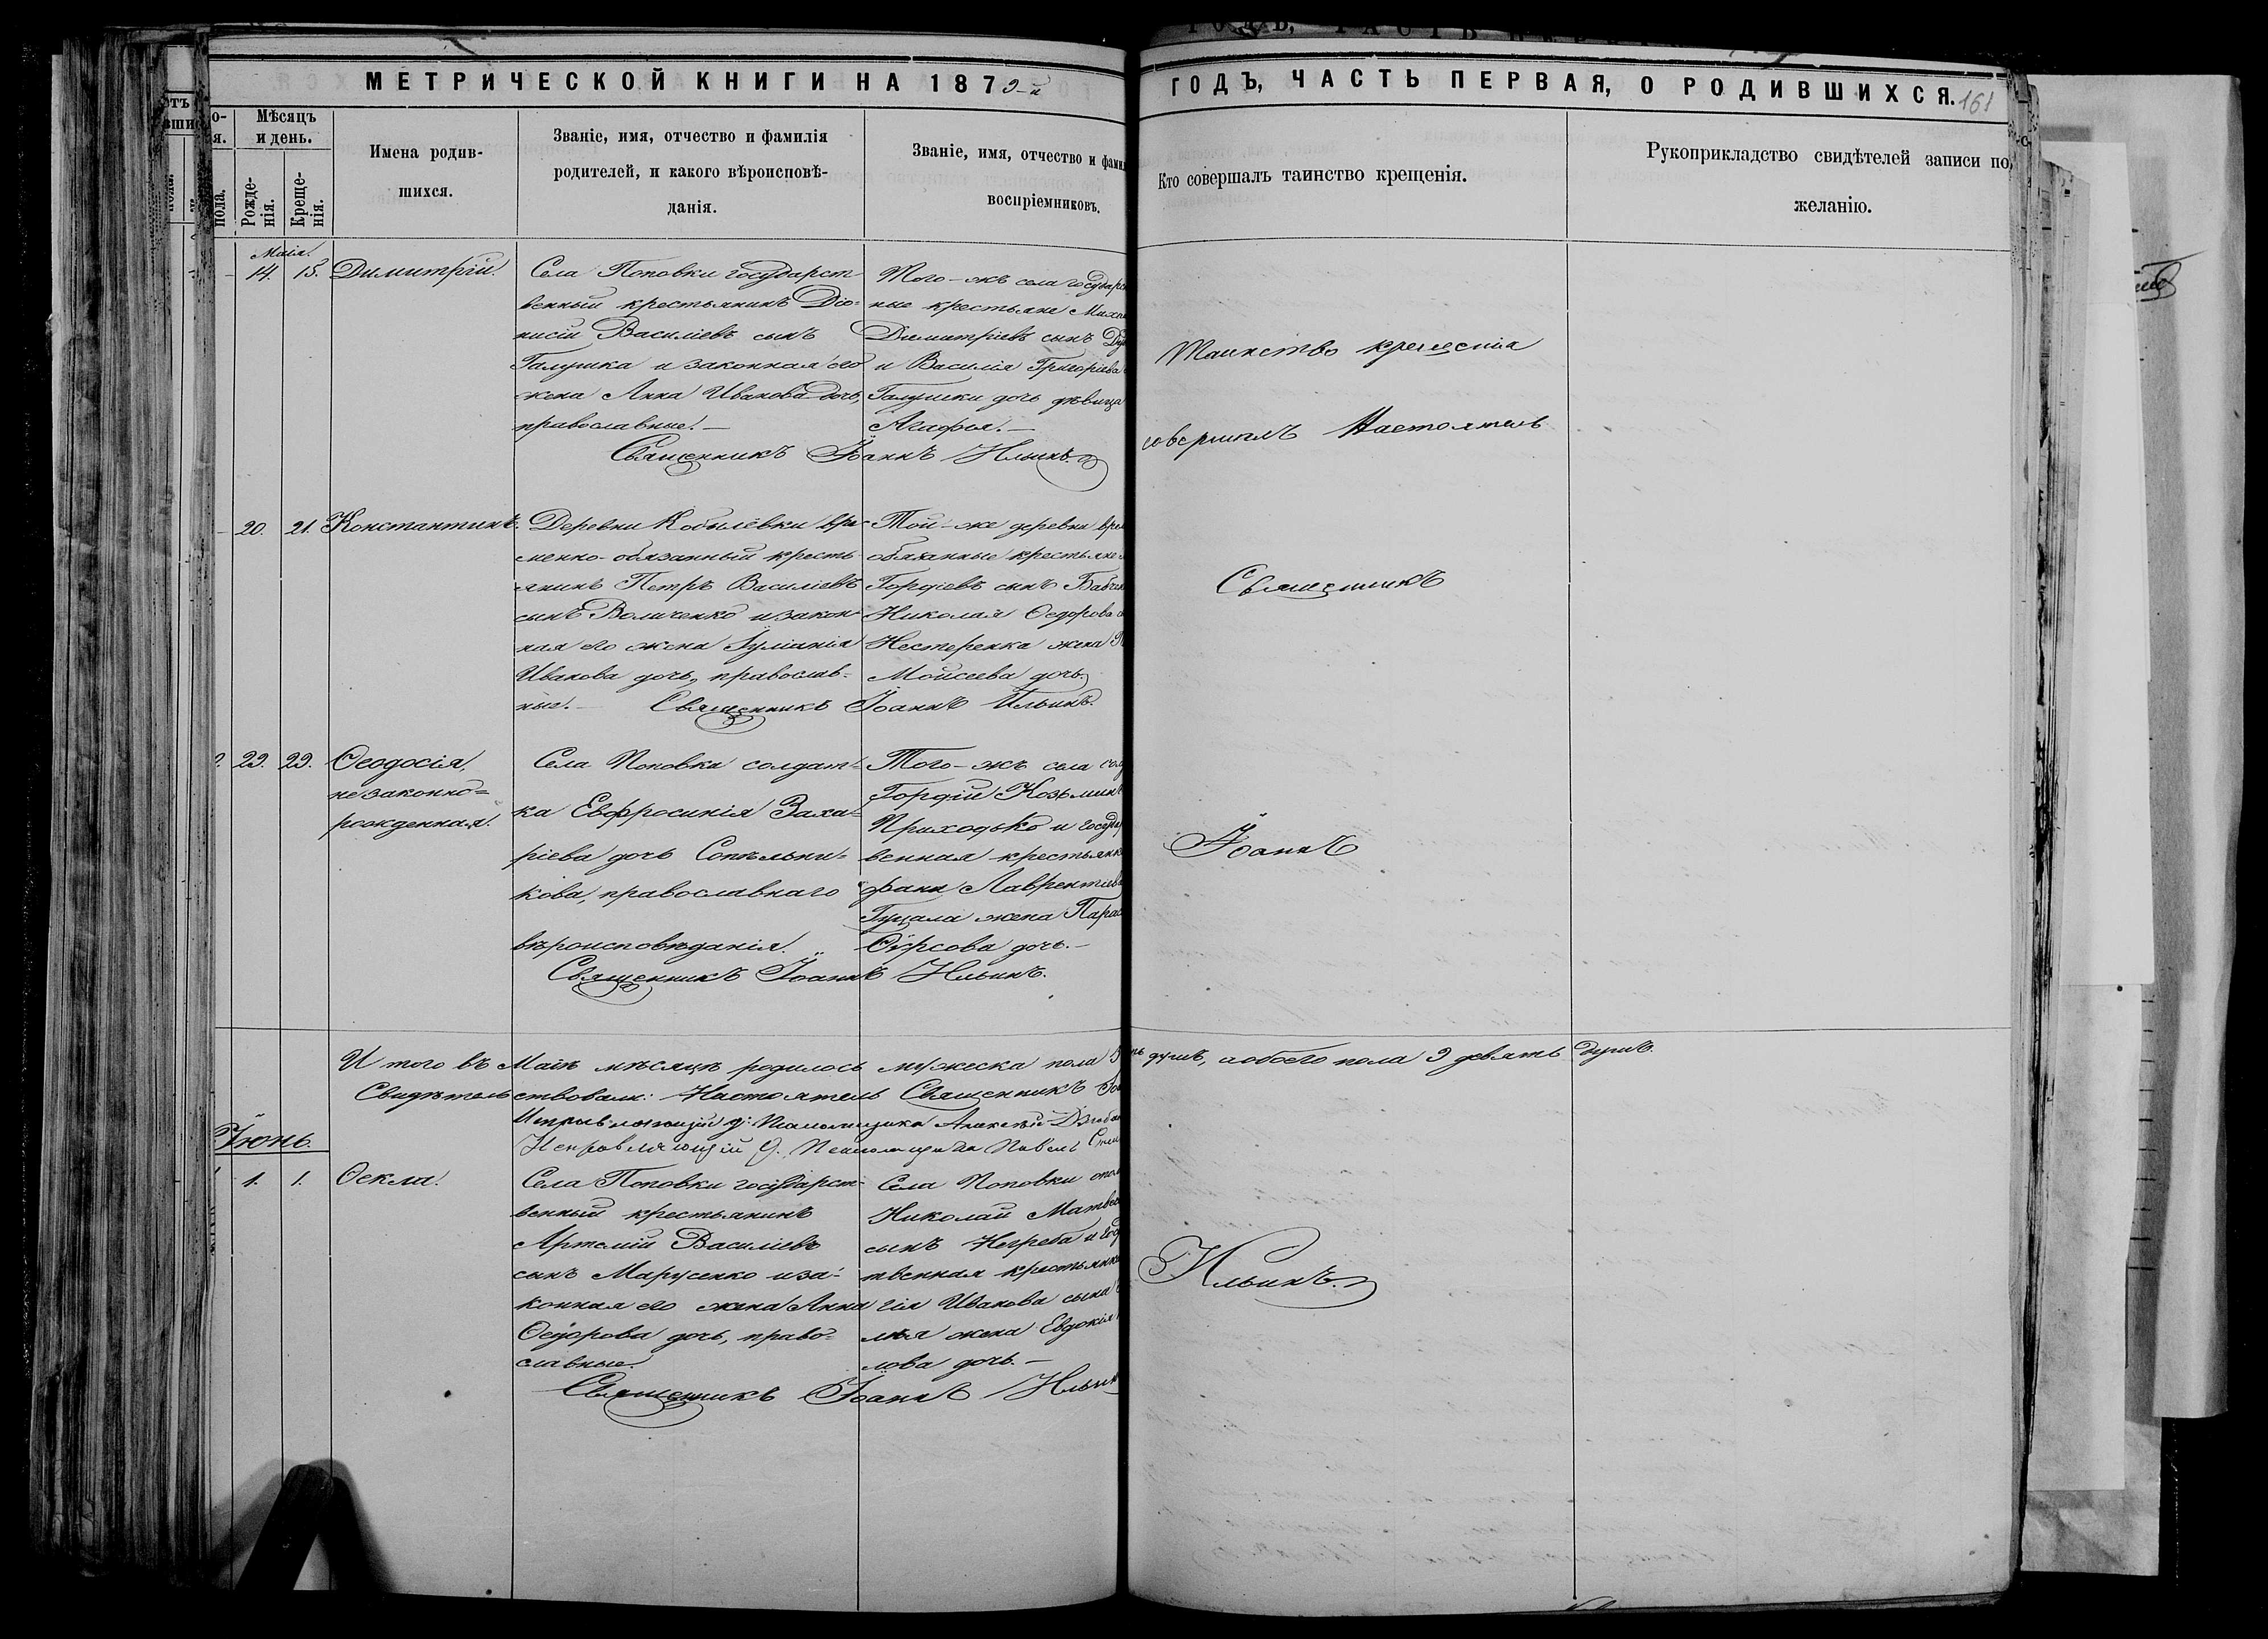 МЕТРИЧЕСКОЙ КНИГИ НА 1879-й
ГОДЪ, ЧАСТЬ ПЕРВАЯ, О РОДИВШИХСЯ. 161
Мѣсяцъ
и день.
пола.
Рожде-
нія.
Креще-
нія.
Имена родив-
шихся.
Званіе, имя, отчество и фамилія
родителей, и какого вѣроисповѣ-
данія.
Званіе, имя, отчество и фами
воспріемниковъ.
Кто совершалъ таинство крещенія.
Рукоприкладство свидѣтелей записи по
желанію.
Маія.
14. 15. Димитрій.
Села Поповки государст-
венный крестьянинъ Діо-
нисій Василіевъ сынъ
Галушка и законная его
жена Анна Иванова дочь,
православные. —
Того-жъ села государс
ные крестьяне Миха
Димитріевъ сынъ
и Василія Григорьева
Галушки дочь дѣвица
Агафья. —
Священникъ Іоаннъ Ильинъ.
20. 21. Константинъ.
Деревни Кобылёвки вре-
менно-обязанный кресть-
янинъ Петръ Василіевъ
сынъ Величенко и закон-
ная его жена Іуліанія
Иванова дочь, православ-
ные. —
Той-же деревни вре
обязанные крестьяне
Гордіевъ сынъ
Николая Ѳедорова
Нестеренка жена
Моисеева дочь.
Священникъ Іоаннъ Ильинъ.
29. 29. Ѳеодосія,
незаконно=
рожденная.
Села Поповки солдат=
ка Евфросинія Заха=
ріева дочь Сопѣльни=
кова, православнаго
вѣроисповѣданія.
Того-жъ села
Гордій Козьминъ
Приходько и госуда
венная крестьянка
фана Лаврентіева
Гуцала жена Парас
Ѳирсова дочь. —
Священникъ Іоаннъ Ильинъ.
И того въ Маіѣ мѣсяцѣ родилось мужеска пола душъ, а обоего пола 9 девять душъ.
Свидѣтельствовали: Настоятель Священникъ
Исправляющій д: Псаломщика Алексѣй
Исправляющій д. Псаломщика Павелъ
Іюнь.
1. 1. Ѳекла.
Села Поповки государст-
венный крестьянинъ
Артемій Василіевъ
сынъ Марусенко и за-
конная его жена Анна
Ѳедорова дочь, право=
славные.
Села Поповки
Николай Матвѣе
сынъ Негреба и
твенная крестьянка
гія Иванова сына
жена Евдокія
лова дочь. —
Священникъ Іоаннъ Ильин
Таинство крещенія
совершилъ Настоятель
Священникъ
Іоаннъ
Ильинъ.